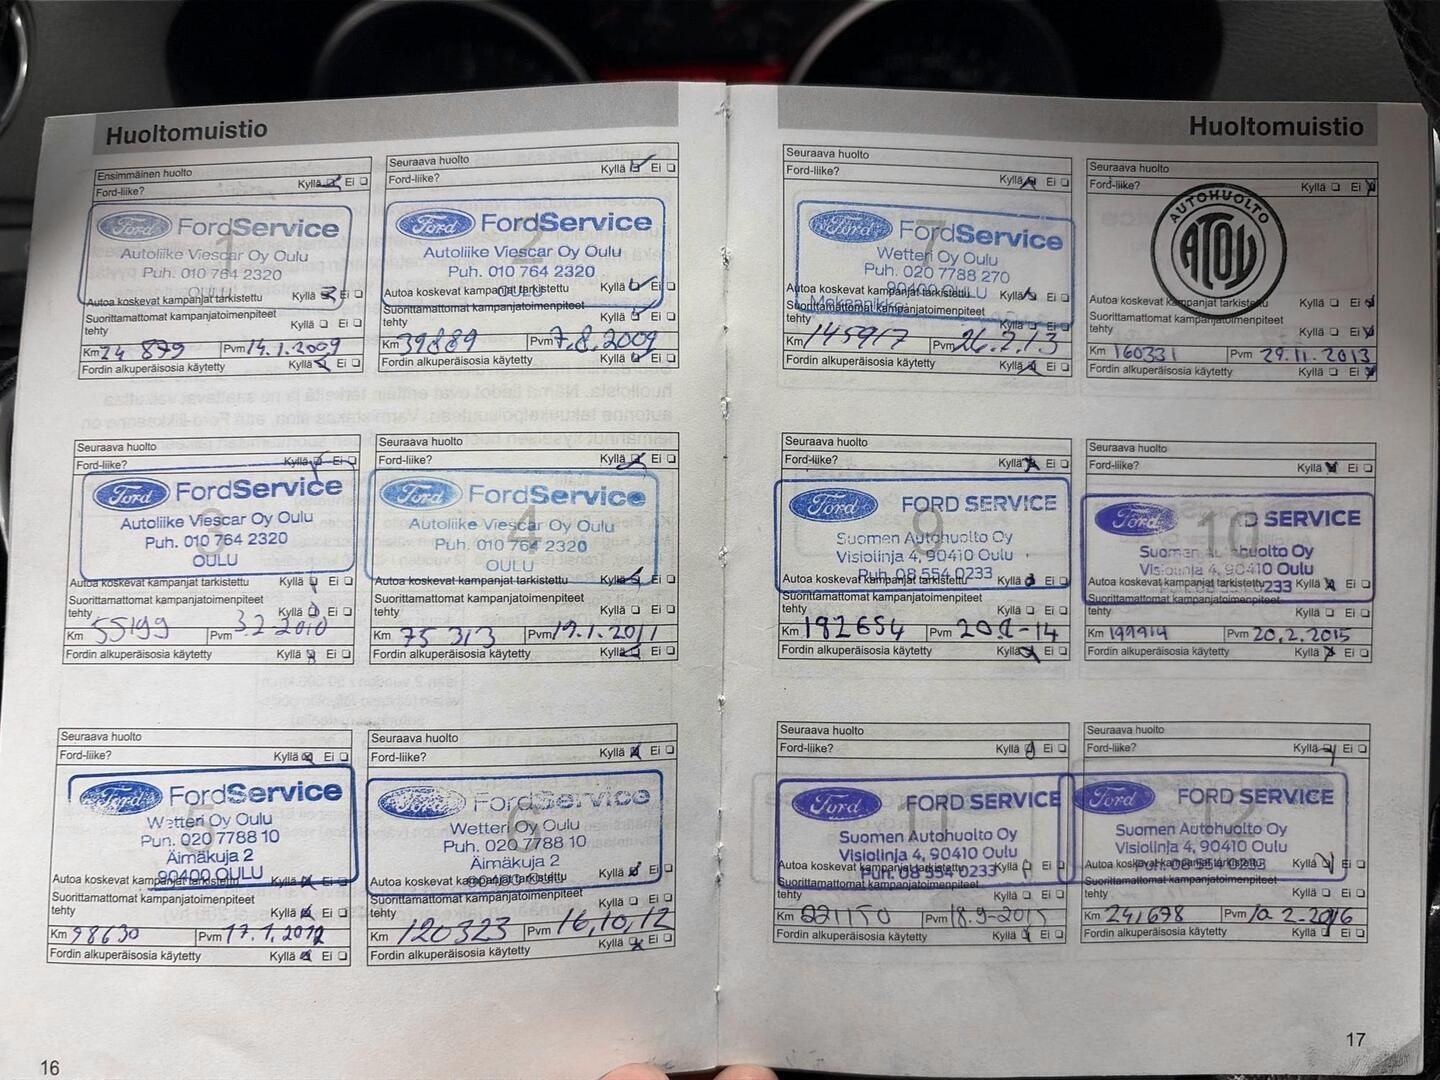 Huoltomuistio
Ensimmäinen huolto
Ford-liike? Kyllä Ei
1
Ford FordService
Autoliike Viescar Oy Oulu
Puh. 010 764 2320
OULU
Autoa koskevat kampanjat tarkistettu Kyllä Ei
Suorittamattomat kampanjatoimenpiteet
tehty Kyllä Ei
Km 24 879 Pvm 14.1.2009
Fordin alkuperäisosia käytetty Kyllä Ei
Seuraava huolto
Ford-liike? Kyllä Ei
2
Ford FordService
Autoliike Viescar Oy Oulu
Puh. 010 764 2320
OULU
Autoa koskevat kampanjat tarkistettu Kyllä Ei
Suorittamattomat kampanjatoimenpiteet
tehty Kyllä Ei
Km 39889 Pvm 7.8.2009
Fordin alkuperäisosia käytetty Kyllä Ei
Seuraava huolto
Ford-liike? Kyllä Ei
3
Ford FordService
Autoliike Viescar Oy Oulu
Puh. 010 764 2320
OULU
Autoa koskevat kampanjat tarkistettu Kyllä Ei
Suorittamattomat kampanjatoimenpiteet
tehty Kyllä Ei
Km 55199 Pvm 3.2-2010
Fordin alkuperäisosia käytetty Kyllä Ei
Seuraava huolto
Ford-liike? Kyllä Ei
4
Ford FordService
Autoliike Viescar Oy Oulu
Puh. 010 764 2320
OULU
Autoa koskevat kampanjat tarkistettu Kyllä Ei
Suorittamattomat kampanjatoimenpiteet
tehty Kyllä Ei
Km 75 313 Pvm 19.1.2011
Fordin alkuperäisosia käytetty Kyllä Ei
Seuraava huolto
Ford-liike? Kyllä Ei
5
Ford FordService
Wetteri Oy Oulu
Puh. 020 7788 10
Äimäkuja 2
90400 OULU
Autoa koskevat kampanjat tarkistettu Kyllä Ei
Suorittamattomat kampanjatoimenpiteet
tehty Kyllä Ei
Km 98630 Pvm 17.1.2012
Fordin alkuperäisosia käytetty Kyllä Ei
Seuraava huolto
Ford-liike? Kyllä Ei
6
Ford FordService
Wetteri Oy Oulu
Puh. 020 7788 10
Äimäkuja 2
Autoa koskevat kampanjat tarkistettu Kyllä Ei
Suorittamattomat kampanjatoimenpiteet
tehty Kyllä Ei
Km 120323 Pvm 16,10,12
Fordin alkuperäisosia käytetty Kyllä Ei
16
Huoltomuistio
Seuraava huolto
Ford-liike? Kyllä Ei
7
Ford FordService
Wetteri Oy Oulu
Puh. 020 7788 270
90400 OULU
Autoa koskevat kampanjat tarkistettu Kyllä Ei
Suorittamattomat kampanjatoimenpiteet
tehty Kyllä Ei
Km 145917 Pvm 26.2.13
Fordin alkuperäisosia käytetty Kyllä Ei
Seuraava huolto
Ford-liike? Kyllä Ei
AUTOHUOLTO
ATOY
Autoa koskevat kampanjat tarkistettu Kyllä Ei
Suorittamattomat kampanjatoimenpiteet
tehty Kyllä Ei
Km 160331 Pvm 29.11.2013
Fordin alkuperäisosia käytetty Kyllä Ei
Seuraava huolto
Ford-liike? Kyllä Ei
9
Ford FORD SERVICE
Suomen Autohuolto Oy
Visiolinja 4, 90410 Oulu
Puh. 08 554 0233
Autoa koskevat kampanjat tarkistettu Kyllä Ei
Suorittamattomat kampanjatoimenpiteet
tehty Kyllä Ei
Km 182654 Pvm 20.2-14
Fordin alkuperäisosia käytetty Kyllä Ei
Seuraava huolto
Ford-liike? Kyllä Ei
10
Ford RD SERVICE
Suomen Autohuolto Oy
Visiolinja 4, 90410 Oulu
Autoa koskevat kampanjat tarkistettu Kyllä Ei
Suorittamattomat kampanjatoimenpiteet
tehty Kyllä Ei
Km 199914 Pvm 20.2.2015
Fordin alkuperäisosia käytetty Kyllä Ei
Seuraava huolto
Ford-liike? Kyllä Ei
11
Ford FORD SERVICE
Suomen Autohuolto Oy
Visiolinja 4, 90410 Oulu
Puh. 08 554 0233
Autoa koskevat kampanjat tarkistettu Kyllä Ei
Suorittamattomat kampanjatoimenpiteet
tehty Kyllä Ei
Km 221150 Pvm 18.9-2015
Fordin alkuperäisosia käytetty Kyllä Ei
Seuraava huolto
Ford-liike? Kyllä Ei
12
Ford FORD SERVICE
Suomen Autohuolto Oy
Visiolinja 4, 90410 Oulu
Puh. 08 554 0233
Autoa koskevat kampanjat tarkistettu Kyllä Ei
Suorittamattomat kampanjatoimenpiteet
tehty Kyllä Ei
Km 241698 Pvm 10.2-2016
Fordin alkuperäisosia käytetty Kyllä Ei
17